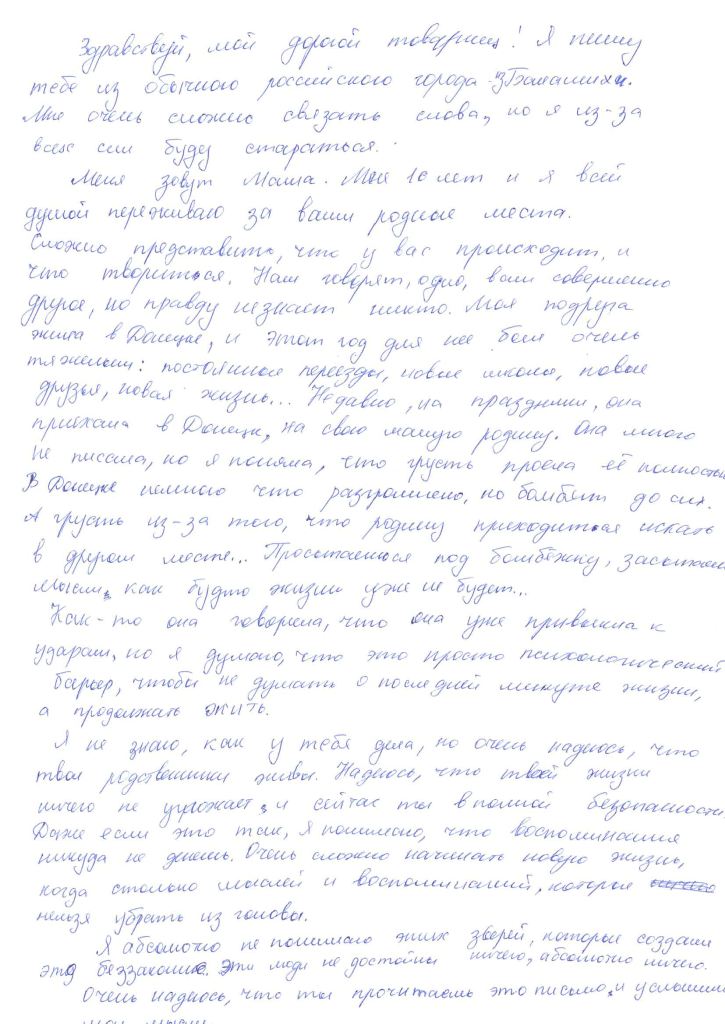 Здравствуй, мой дорогой товарищ! Я пишу
тебе из обычного российского города Балашихи.
Мне очень сложно связать слова, но я из-за
всех сил буду стараться.
Меня зовут Маша. Мне 16 лет и я всей
душой переживаю за ваши родные места.
Сложно представить, что у вас происходит, и
что творится. Нам говорят, одно, вам совершенно
другое, но правду незнает никто. Моя подруга
жила в Донецке, и этот год для нее был очень
тяжелым: постоянные переезды, новые школы, новые
друзья, новая жизнь... Недавно, на праздники, она
приехала в Донецк, на свою малую родину. Она много
не писала, но я поняла, что грусть проела её полностью
В Донецке немного что разгромлено, но бомбят до сих.
А грусть из-за того, что родину приходиться искать
в другом месте... Просыпаешься под бомбёжку, засыпаешь
мысли, как будто жизни уже не будет...
Как-то она говорила, что она уже привыкла к
ударам, но я думаю, что это просто психологический
барьер, чтобы не думать о последней минуте жизни,
а продолжать жить.
Я не знаю, как у тебя дела, но очень надеюсь, что
твои родственники живы. Надеюсь, что твоей жизни
ничего не угрожает, и сейчас ты в полной безопасности.
Даже если это так, я понимаю, что воспоминания
никуда не денешь. Очень сложно начинать новую жизнь,
когда столько мыслей и воспоминаний, которые
нельзя убрать из головы.
Я абсолютно не понимаю этих зверей, которые создали
это беззаконие. Эти люди не достойны ничего, абсолютно ничего.
Очень надеюсь, что ты прочитаешь это письмо, и услышишь
мои мысли.